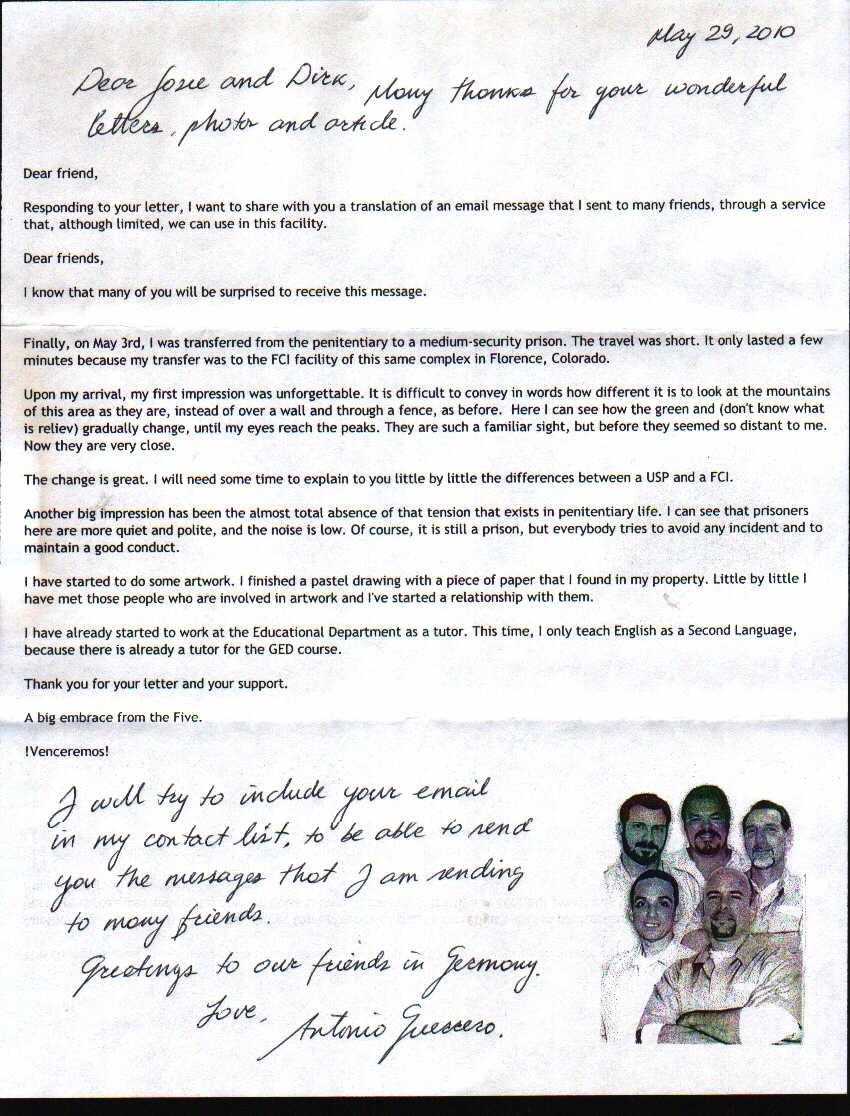 May 29, 2010
Dear Josie and Dirk, Many thanks for your wonderful
letters, photos and article.
Dear friend,
Responding to your letter, I want to share with you a translation of an email message that I sent to many friends, through a service
that, although limited, we can use in this facility.
Dear friends,
I know that many of you will be surprised to receive this message.
Finally, on May 3rd, I was transferred from the penitentiary to a medium-security prison. The travel was short. It only lasted a few
minutes because my transfer was to the FCI facility of this same complex in Florence, Colorado.
Upon my arrival, my first impression was unforgettable. It is difficult to convey in words how different it is to look at the mountains
of this area as they are, instead of over a wall and through a fence, as before. Here I can see how the green and (don't know what
is reliev) gradually change, until my eyes reach the peaks. They are such a familiar sight, but before they seemed so distant to me.
Now they are very close.
The change is great. I will need some time to explain to you little by little the differences between a USP and a FCI.
Another big impression has been the almost total absence of that tension that exists in penitentiary life. I can see that prisoners
here are more quiet and polite, and the noise is low. Of course, it is still a prison, but everybody tries to avoid any incident and to
maintain a good conduct.
I have started to do some artwork. I finished a pastel drawing with a piece of paper that I found in my property. Little by little I
have met those people who are involved in artwork and I've started a relationship with them.
I have already started to work at the Educational Department as a tutor. This time, I only teach English as a Second Language,
because there is already a tutor for the GED course.
Thank you for your letter and your support.
A big embrace from the Five.
!Venceremos!
I will try to include your email
in my contact list, to be able to send
you the messages that I am sending
to many friends.
Greetings to our friends in Germany.
Love,
Antonio Guerrero.